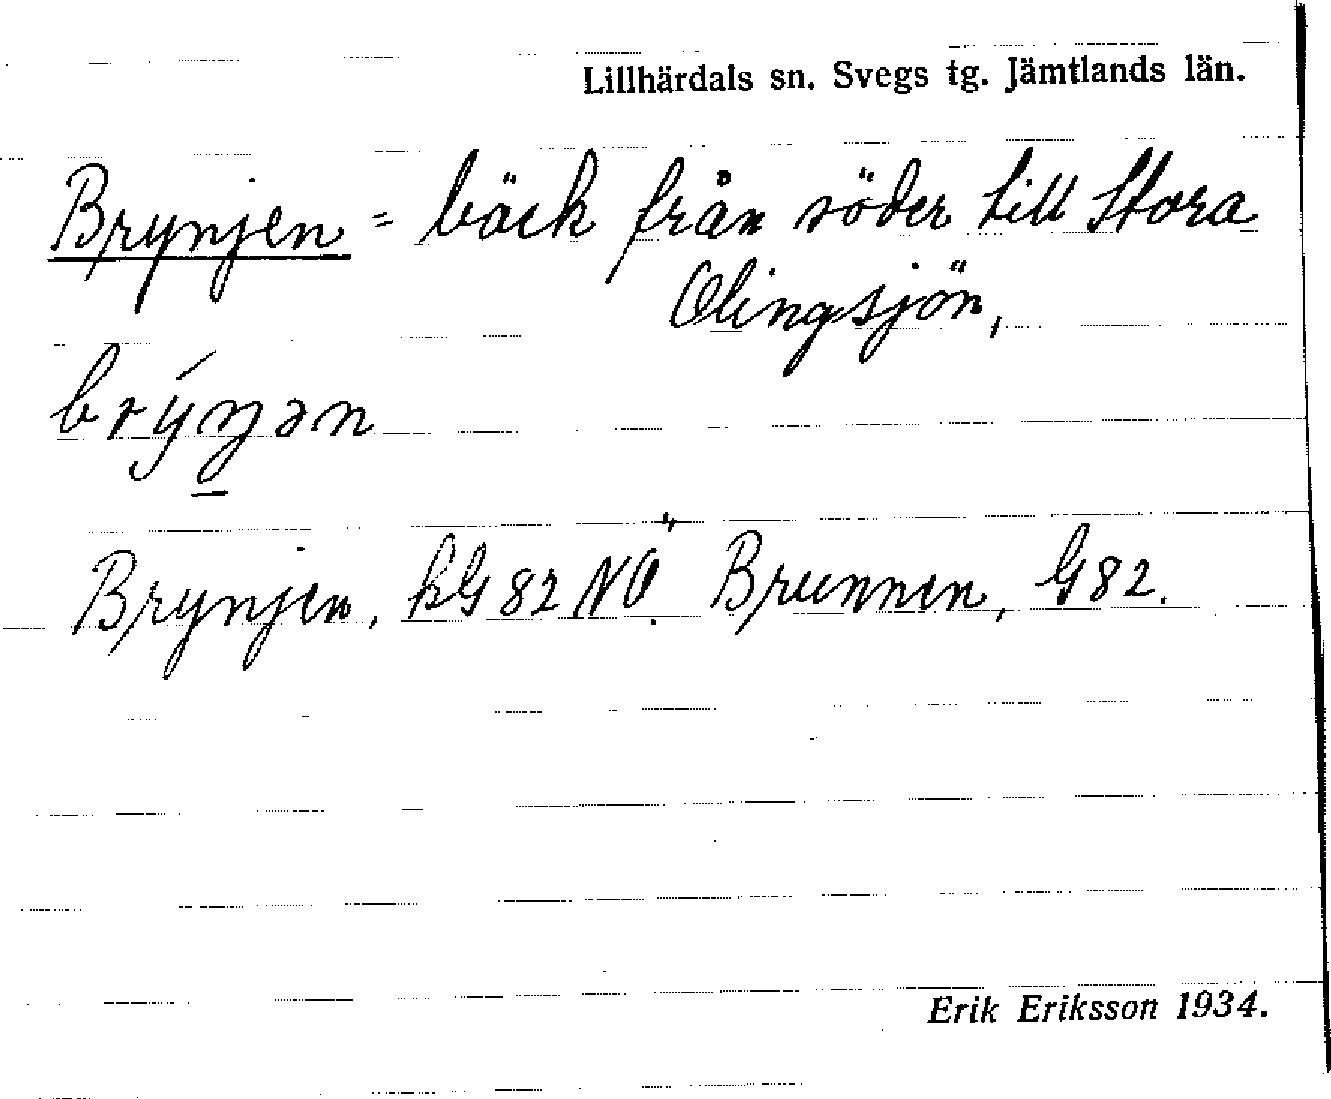 Lillhärdals sn. Svegs tg. Jämtlands län.
Brynjen = bäck från söder till Stora
Olingsjön,
brýŋən
Brynjen, kG82NÖ. Brunnen, G82.
Erik Eriksson 1934.